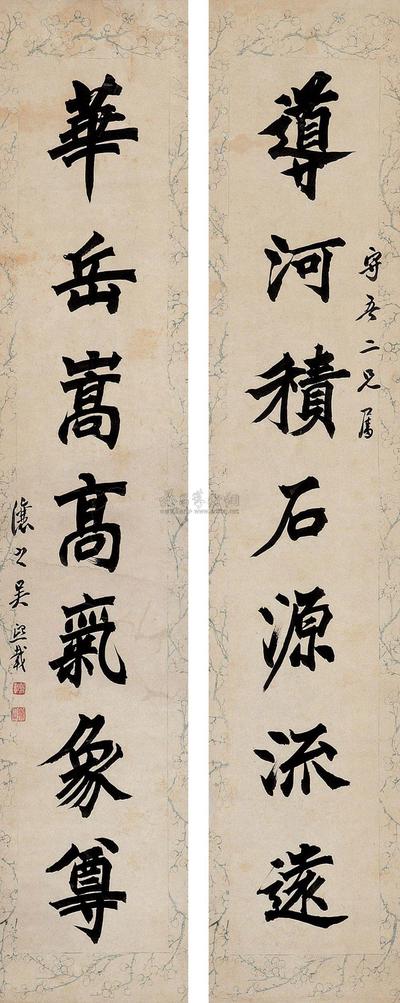 導河積石源流遠
守吾二兄屬
華岳嵩高氣象尊
讓之吳熙載